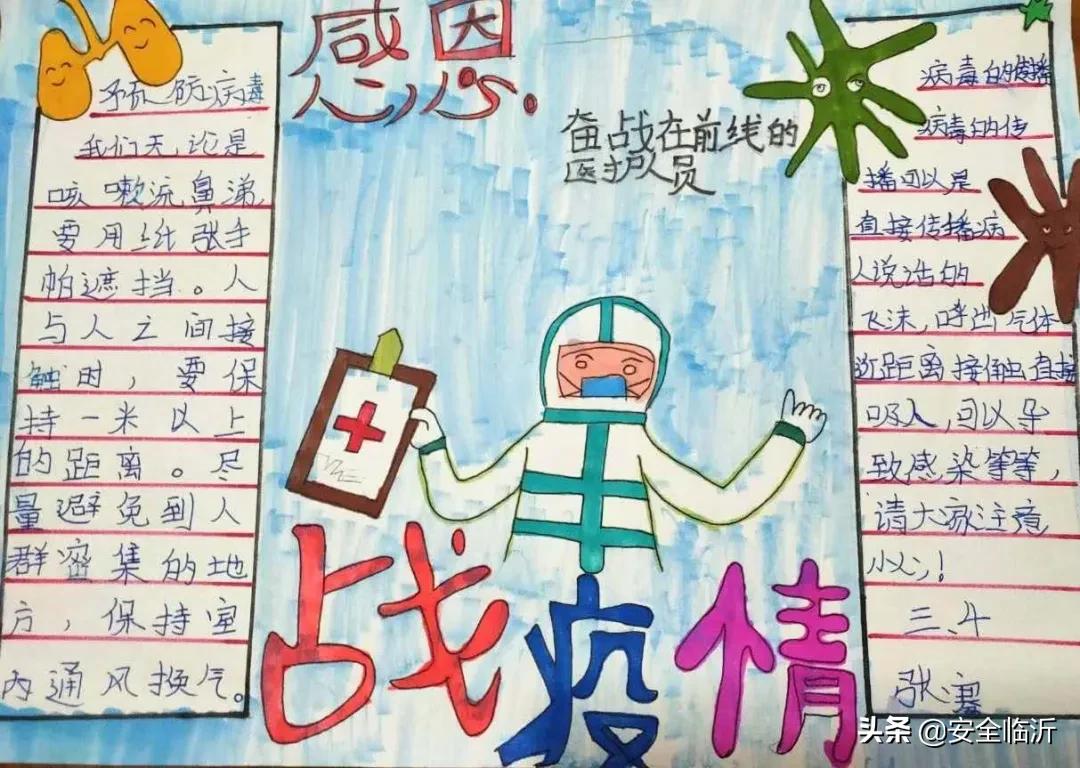 感恩.
奋战在前线的
医护人员
预防病毒
我们无论是
咳嗽流鼻涕,
要用纸张手
帕遮挡。人
与人之间接
触时，要保
持一米以上
的距离。尽
量避免到人
群密集的地
方，保持室
内通风换气。
病毒的传播
病毒的传
播可以是
直接传播病
人说话的
飞沫，呼出气体
近距离接触直接
吸入，可以导
致感染等等，
请大家注意
小心！
三、4
张
战疫情
头条 @安全临沂